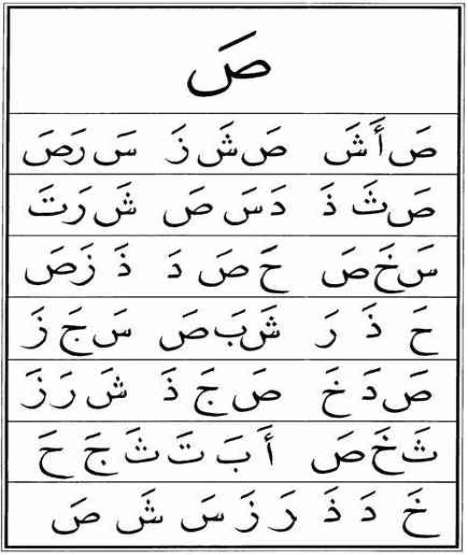 صَ
صَ أَ شَ صَ شَ زَ سَ رَ صَ
صَ ثَ ذَ دَ سَ صَ شَ رَ تَ
سَ خَ صَ حَ صَ دَ ذَ زَ صَ
حَ ذَ رَ شَ بَ صَ سَ جَ زَ
صَ دَ خَ صَ جَ ذَ شَ رَ زَ
ثَ خَ صَ أَ بَ تَ ثَ جَ حَ
خَ دَ ذَ رَ زَ سَ شَ صَ